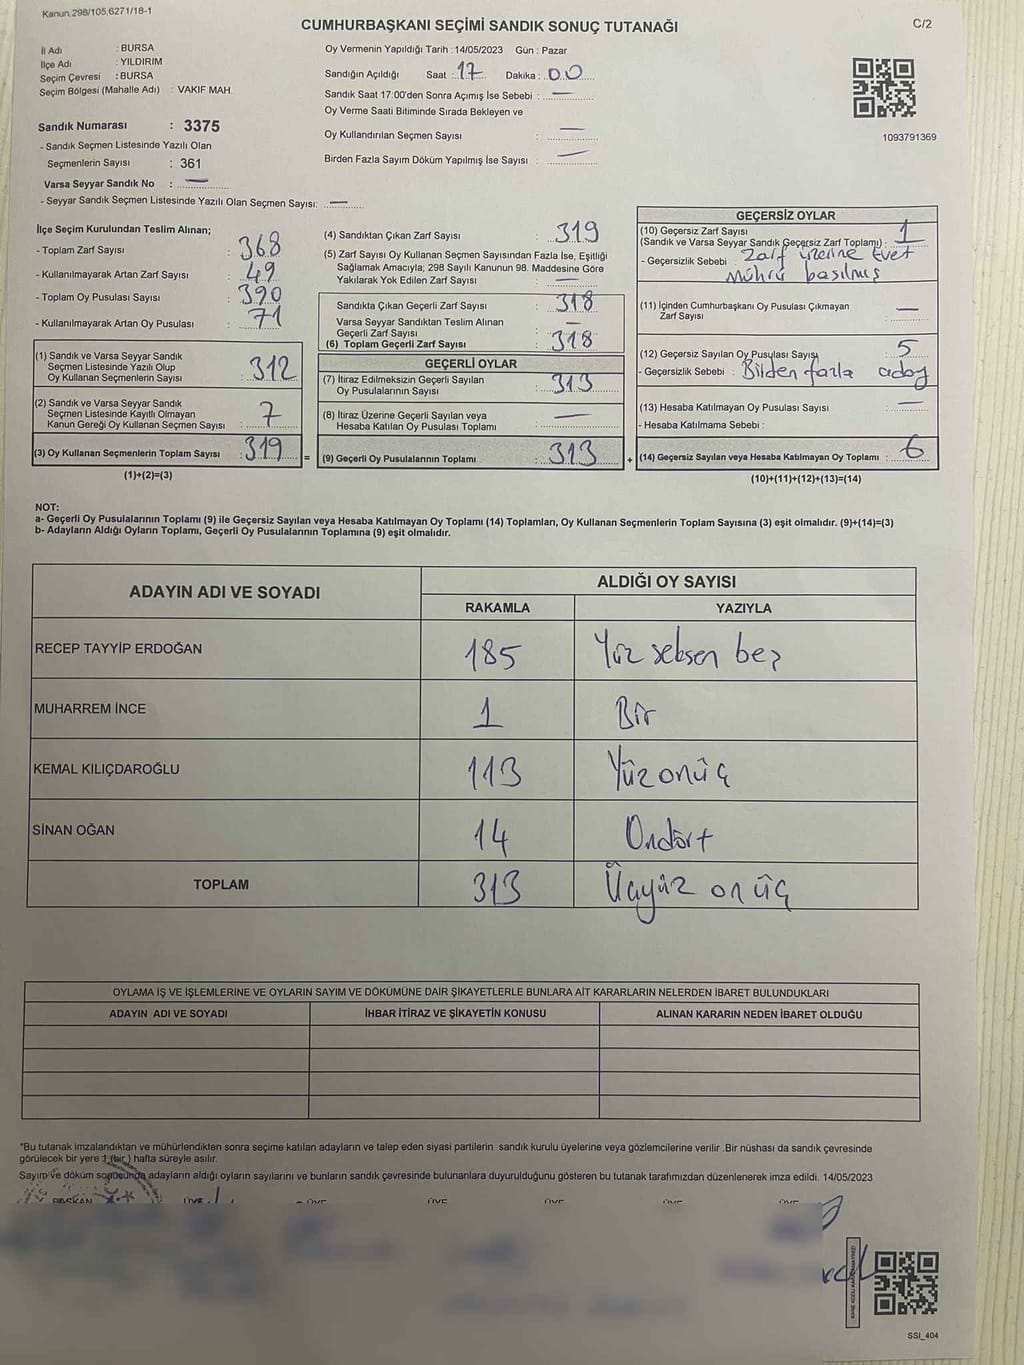 Kanun,298/105,6271/18-1
CUMHURBAŞKANI SEÇİMİ SANDIK SONUÇ TUTANAĞI
C/2
İl Adı : BURSA
İlçe Adı : YILDIRIM
Seçim Çevresi : BURSA
Seçim Bölgesi (Mahalle Adı) : VAKIF MAH.
Sandık Numarası : 3375
- Sandık Seçmen Listesinde Yazılı Olan
Seçmenlerin Sayısı : 361
Varsa Seyyar Sandık No : —
- Seyyar Sandık Seçmen Listesinde Yazılı Olan Seçmen Sayısı: —
Oy Vermenin Yapıldığı Tarih : 14/05/2023 Gün : Pazar
Sandığın Açıldığı Saat : 17 Dakika : 00
Sandık Saat 17:00'den Sonra Açımış İse Sebebi : —
Oy Verme Saati Bitiminde Sırada Bekleyen ve
Oy Kullandırılan Seçmen Sayısı : —
Birden Fazla Sayım Döküm Yapılmış İse Sayısı : —
1093791369
İlçe Seçim Kurulundan Teslim Alınan;
- Toplam Zarf Sayısı : 368
- Kullanılmayarak Artan Zarf Sayısı : 49
- Toplam Oy Pusulası Sayısı : 390
- Kullanılmayarak Artan Oy Pusulası : 71
(1) Sandık ve Varsa Seyyar Sandık
Seçmen Listesinde Yazılı Olup
Oy Kullanan Seçmenlerin Sayısı : 312
(2) Sandık ve Varsa Seyyar Sandık
Seçmen Listesinde Kayıtlı Olmayan
Kanun Gereği Oy Kullanan Seçmen Sayısı : 7
(3) Oy Kullanan Seçmenlerin Toplam Sayısı : 319
(1)+(2)=(3)
(4) Sandıktan Çıkan Zarf Sayısı : 319
(5) Zarf Sayısı Oy Kullanan Seçmen Sayısından Fazla İse, Eşitliği
Sağlamak Amacıyla; 298 Sayılı Kanunun 98. Maddesine Göre
Yakılarak Yok Edilen Zarf Sayısı : —
Sandıkta Çıkan Geçerli Zarf Sayısı : 318
Varsa Seyyar Sandıktan Teslim Alınan
Geçerli Zarf Sayısı : —
(6) Toplam Geçerli Zarf Sayısı : 318
GEÇERLİ OYLAR
(7) İtiraz Edilmeksizin Geçerli Sayılan
Oy Pusulalarının Sayısı : 313
(8) İtiraz Üzerine Geçerli Sayılan veya
Hesaba Katılan Oy Pusulası Toplamı : —
= (9) Geçerli Oy Pusulalarının Toplamı : 313
GEÇERSİZ OYLAR
(10) Geçersiz Zarf Sayısı
(Sandık ve Varsa Seyyar Sandık Geçersiz Zarf Toplamı) : 1
- Geçersizlik Sebebi : Zarf üzerine Evet
Mührü basılmış
(11) İçinden Cumhurbaşkanı Oy Pusulası Çıkmayan
Zarf Sayısı : —
(12) Geçersiz Sayılan Oy Pusulası Sayısı : 5
- Geçersizlik Sebebi : Birden fazla aday
(13) Hesaba Katılmayan Oy Pusulası Sayısı : —
- Hesaba Katılmama Sebebi :
+ (14) Geçersiz Sayılan veya Hesaba Katılmayan Oy Toplamı : 6
(10)+(11)+(12)+(13)=(14)
NOT:
a- Geçerli Oy Pusulalarının Toplamı (9) ile Geçersiz Sayılan veya Hesaba Katılmayan Oy Toplamı (14) Toplamları, Oy Kullanan Seçmenlerin Toplam Sayısına (3) eşit olmalıdır. (9)+(14)=(3)
b- Adayların Aldığı Oyların Toplamı, Geçerli Oy Pusulalarının Toplamına (9) eşit olmalıdır.
ADAYIN ADI VE SOYADI
ALDIĞI OY SAYISI
RAKAMLA YAZIYLA
RECEP TAYYİP ERDOĞAN 185 Yüz seksen beş
MUHARREM İNCE 1 Bir
KEMAL KILIÇDAROĞLU 113 Yüz onüç
SİNAN OĞAN 14 Ondört
TOPLAM 313 Üçyüz onüç
OYLAMA İŞ VE İŞLEMLERİNE VE OYLARIN SAYIM VE DÖKÜMÜNE DAİR ŞİKAYETLERLE BUNLARA AİT KARARLARIN NELERDEN İBARET BULUNDUKLARI
ADAYIN ADI VE SOYADI İHBAR İTİRAZ VE ŞİKAYETİN KONUSU ALINAN KARARIN NEDEN İBARET OLDUĞU
*Bu tutanak imzalandıktan ve mühürlendikten sonra seçime katılan adayların ve talep eden siyasi partilerin sandık kurulu üyelerine veya gözlemcilerine verilir .Bir nüshası da sandık çevresinde
görülecek bir yere 1 (bir) hafta süreyle asılır.
Sayım ve döküm sonucunda adayların aldığı oyların sayılarını ve bunların sandık çevresinde bulunanlara duyurulduğunu gösteren bu tutanak tarafımızdan düzenlenerek imza edildi. 14/05/2023
BAŞKAN ÜYE ÜYE ÜYE ÜYE ÜYE ÜYE
SSI_404